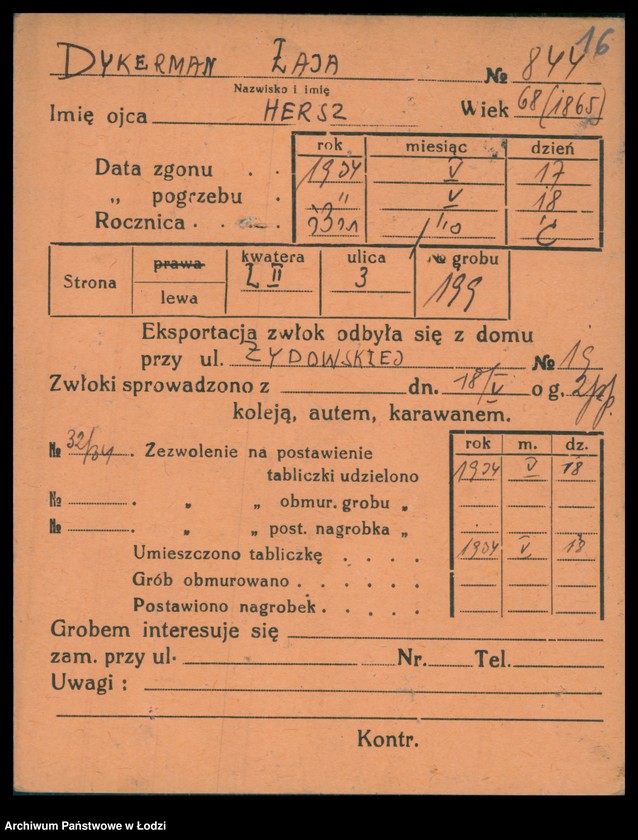 16
DYKERMAN ŁAJA № 844
Nazwisko i imię
Imię ojca HERSZ Wiek 68 (1865)
rok miesiąc dzień
Data zgonu . . 1934 V 17
„ pogrzebu . „ V 18
Rocznica . . . .
Strona prawa lewa kwatera L II ulica 3 № grobu 199
Eksportacja zwłok odbyła się z domu
przy ul. ŻYDOWSKIEJ № 19
Zwłoki sprowadzono z dn. 18/V o g. 2 pp.
koleją, autem, karawanem.
rok m. dz.
№ 32/34. Zezwolenie na postawienie
tabliczki udzielono 1934 V 18
№ . „ „ obmur. grobu „
№ . „ „ post. nagrobka „
Umieszczono tabliczkę . . . . 1934 V 18
Grób obmurowano . . . . . .
Postawiono nagrobek . . . . .
Grobem interesuje się
zam. przy ul. Nr. Tel.
Uwagi :
Kontr.
Archiwum Państwowe w Łodzi